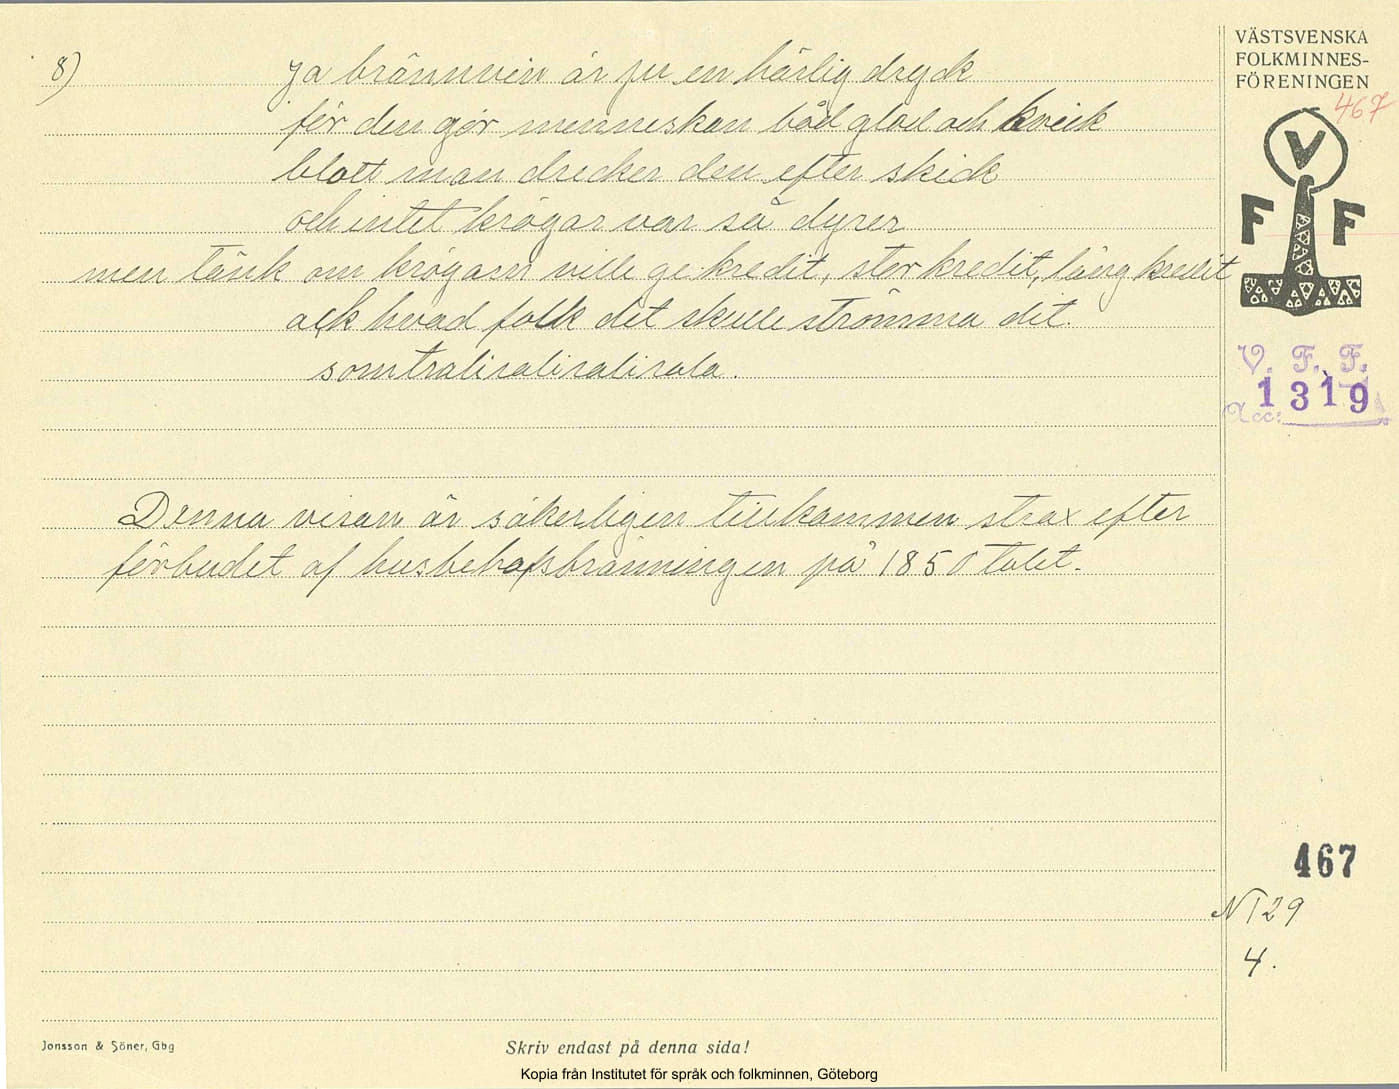 8)
Ja brännvin är ju en härlig dryck
för den gör menneskan båd glad och kvick
blott man dricker den efter skick
och intet krögar var så dyrer
men tänk om krögarn ville ge kredit, stor kredit, lång kredit
ack hvad folk det skulle strömma dit.
somtraliraliralirala.
Denna visan är säkerligen tillkommen strax efter
förbudet af husbehofsbränningen på 1850 talet.
VÄSTSVENSKA
FOLKMINNES-
FÖRENINGEN
467
V
F F
V. F. F.
1319
Acc:
467
NT29
4.
Jonsson & Söner, Gbg
Skriv endast på denna sida!
Kopia från Institutet för språk och folkminnen, Göteborg